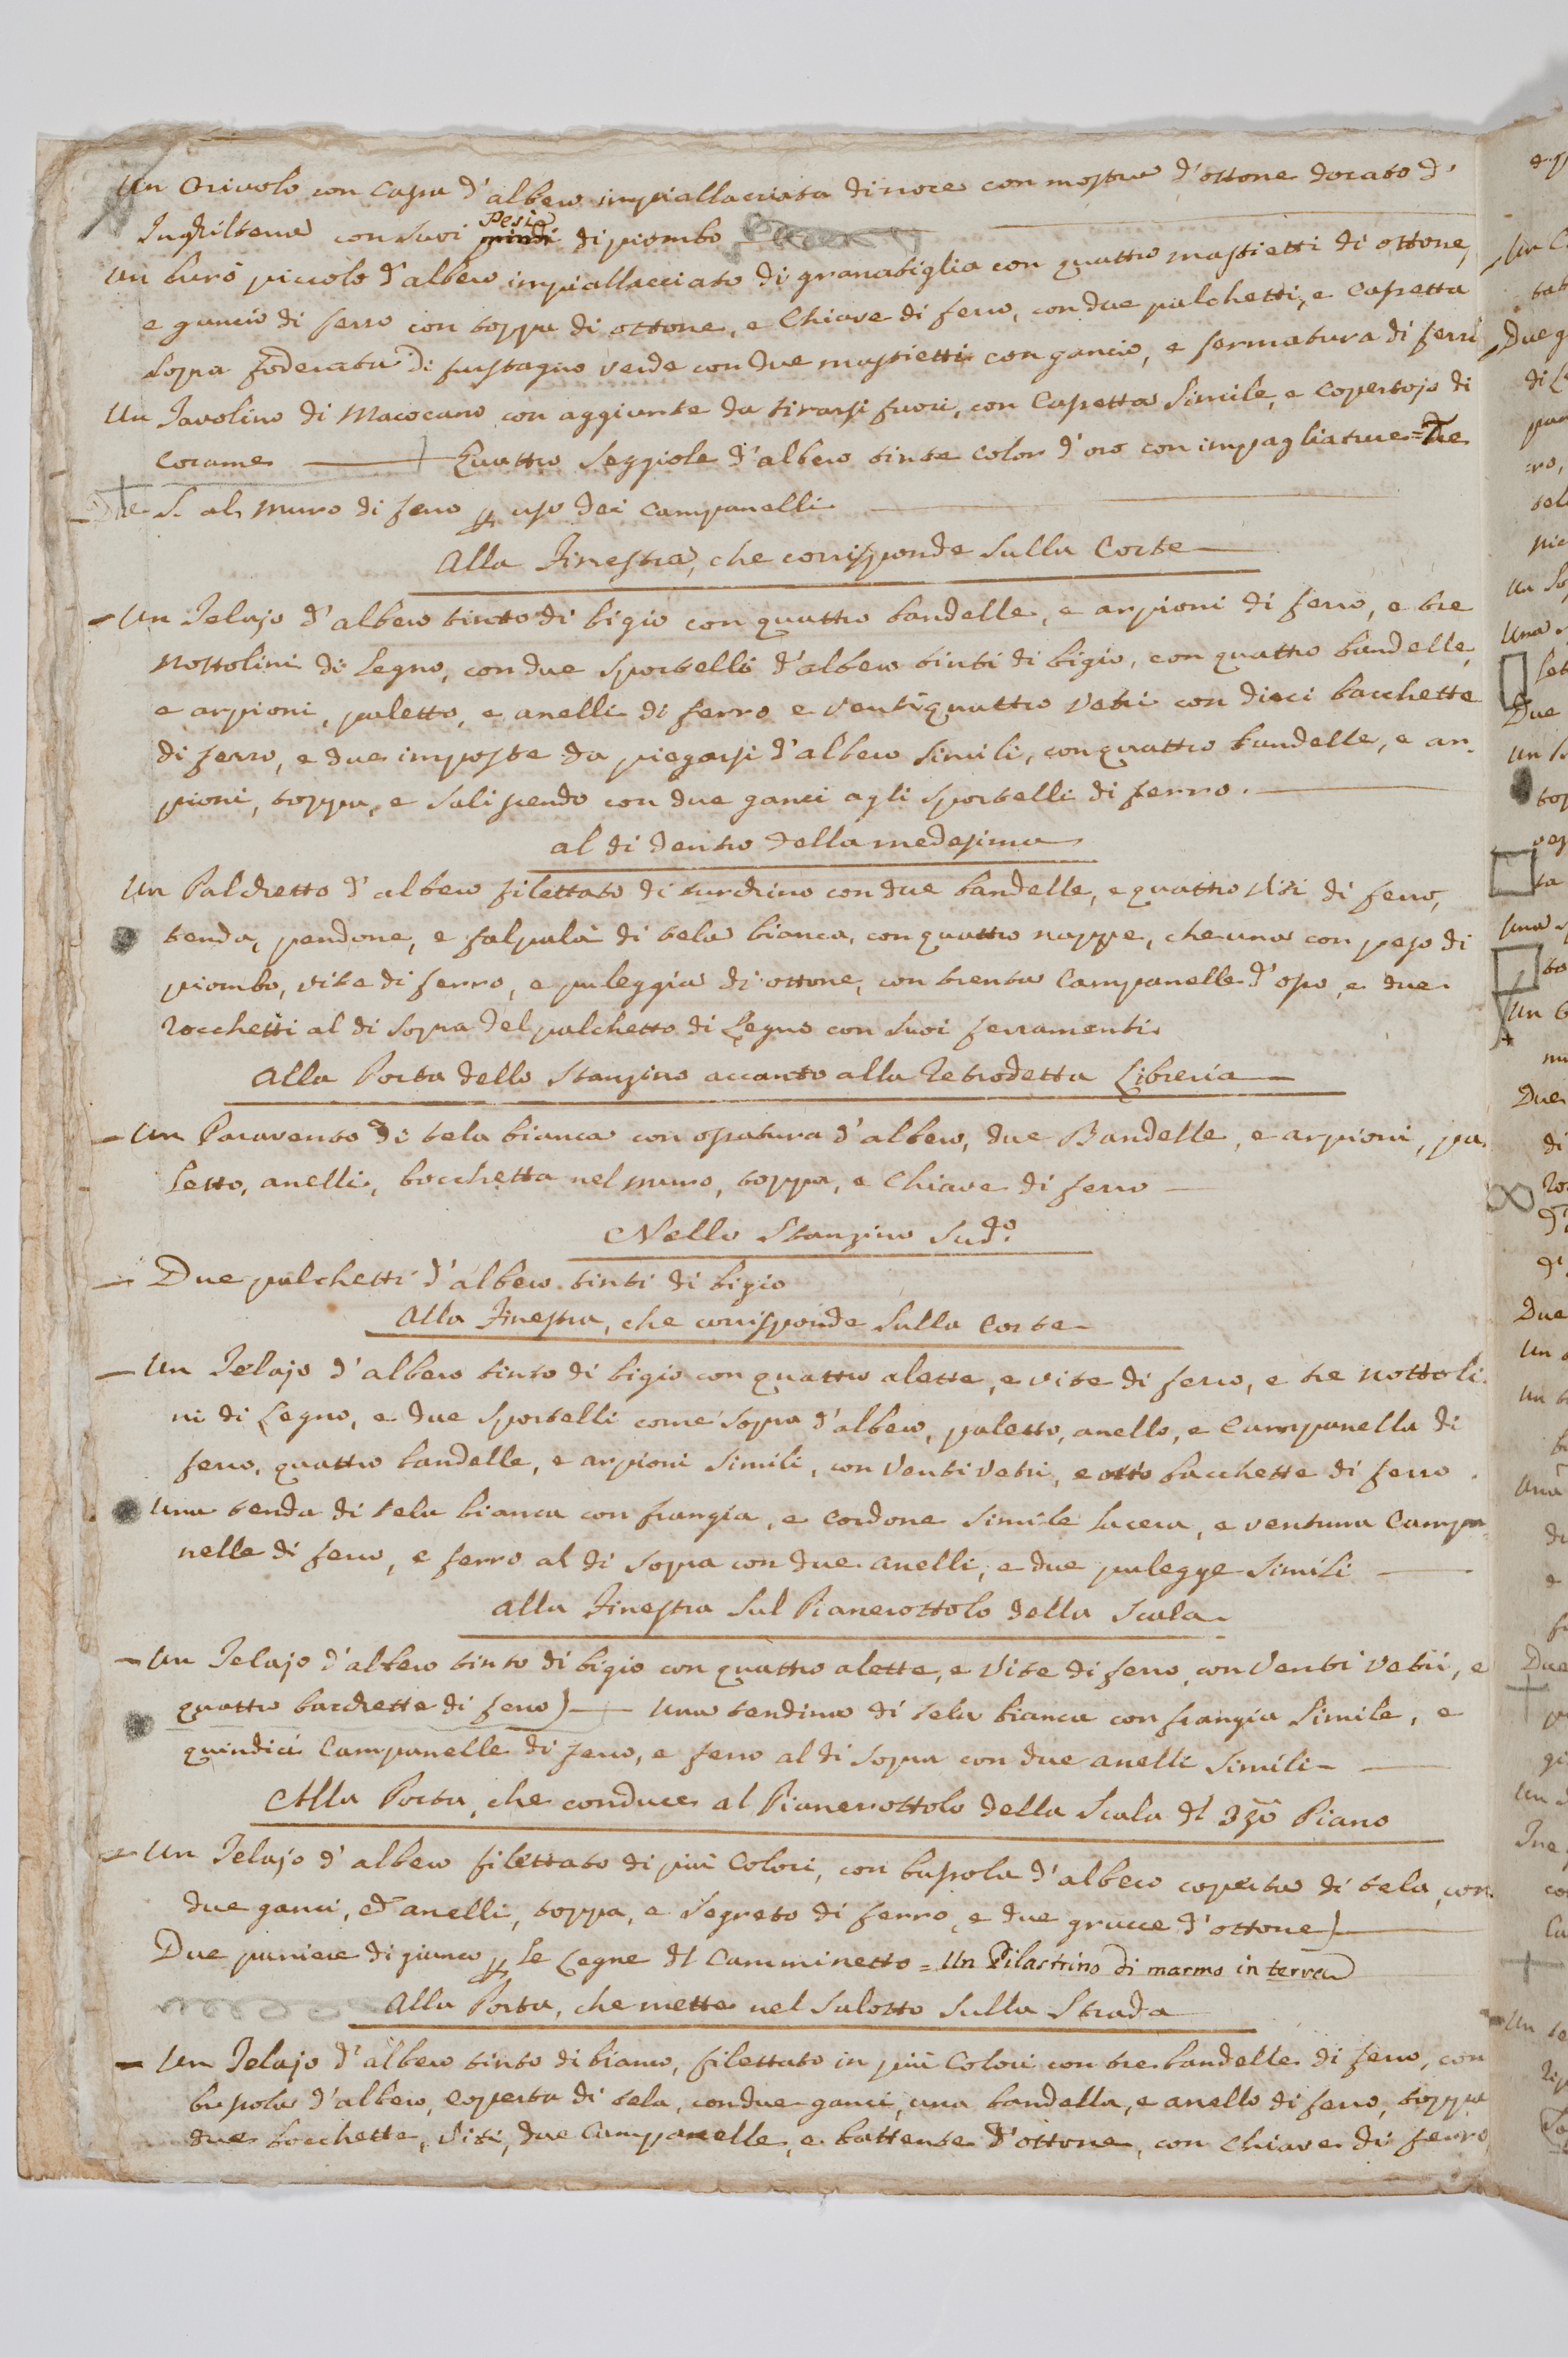 Un Orivolo con Cassa d'albero impiallacciata di noce con mostra d'ottone dorato d'
Inghilterra con suoi Pesi di piombo
Un burò piccolo d'albero impiallacciato di granatiglia con quattro mastietti di ottone,
e gancio di ferro con toppa di ottone, e Chiave di ferro, con due palchetti, e Cassetta
sopra foderata di fustagno verde con due mastietti con gancio, e fermatura di ferro
Un Tavolino di Macocano con aggiunte da tirarsi fuori, con Cassetta Simile, e Copertojo di
Corame Quattro Seggiole d'albero tinte Color d'oro con impagliature = Due
S. al muro di ferro p uso dei Campanelli
Alla Finestra, che corrisponde sulla Corte
Un Telajo d'albero tinto di bigio con quattro bandelle, e arpioni di ferro, e tre
Nottolini di Legno, con due Sportelli d'albero tinti di bigio, con quattro bandelle,
e arpioni, paletto, e anelli di ferro e Ventiquattro Vetri con dieci bacchette
di ferro, e due imposte da piegarsi d'albero Simili, con quattro bandelle, e ar-
pioni, toppa, e Saliscendo con due ganci agli Sportelli di ferro.
al di dentro della medesima
Un Palchetto d'albero filettato di turchino con due bandelle, e quattro Viti di ferro,
tenda, pendone, e falpalà di tela bianca, con quattro nappe, che una con peso di
piombo, vite di ferro, e puleggia di ottone, con trenta Campanelle d'osso, e due
Rocchetti al di Sopra del palchetto di Legno con Suoi ferramenti
Alla Porta dello Stanzino accanto alla Retrodetta Libreria
Un Paravento di tela bianca con ossatura d'albero, due Bandelle, e arpioni, pa-
letto, anelli, bocchetta nel muro, toppa, e Chiave di ferro
Nello Stanzino Sud.º
Due palchetti d'albero tinti di bigio
Alla Finestra, che corrisponde Sulla Corte
Un Telajo d'albero tinto di bigio con quattro alette, e vite di ferro, e tre nottoli-
ni di Legno, e due Sportelli come Sopra d'albero, paletto, anello, e Campanella di
ferro, quattro bandelle, e arpioni Simili, con Venti Vetri, e otto bacchette di ferro.
Una tenda di tela bianca con frangia, e Cordone Simile lacera, e ventuna Campa-
nelle di ferro, e ferro al di Sopra con due anelli, e due pulegge Simili
Alla Finestra Sul Pianerottolo della Scala
Un Telajo d'albero tinto di bigio con quattro alette, e Vite di ferro, con Venti Vetri, e
quattro bacchette di ferro) Una tendina di tela bianca con frangia Simile, e
quindici Campanelle di ferro, e ferro al di Sopra con due anelli Simili
Alla Porta, che conduce al Pianerottolo della Scala dl 3zo Piano
Un Telajo d'albero filettato di più Colori, con bussola d'albero coperta di tela, con
due ganci, ed anelli, toppa, e Segreto di ferro, e due grucce d'ottone)
Due paniere di giunco p le Legne dl Camminetto = Un Pilastrino di marmo in terra
Alla Porta, che mette nel Salotto Sulla Strada
Un Telajo d'albero tinto di bianco, filettato in più Colori con tre bandelle di ferro, con
bussola d'albero, coperta di tela, con due ganci, una bandella, e anello di ferro, toppa
due bocchette, Viti, due Campanelle, e battente d'ottone, con Chiave di ferro